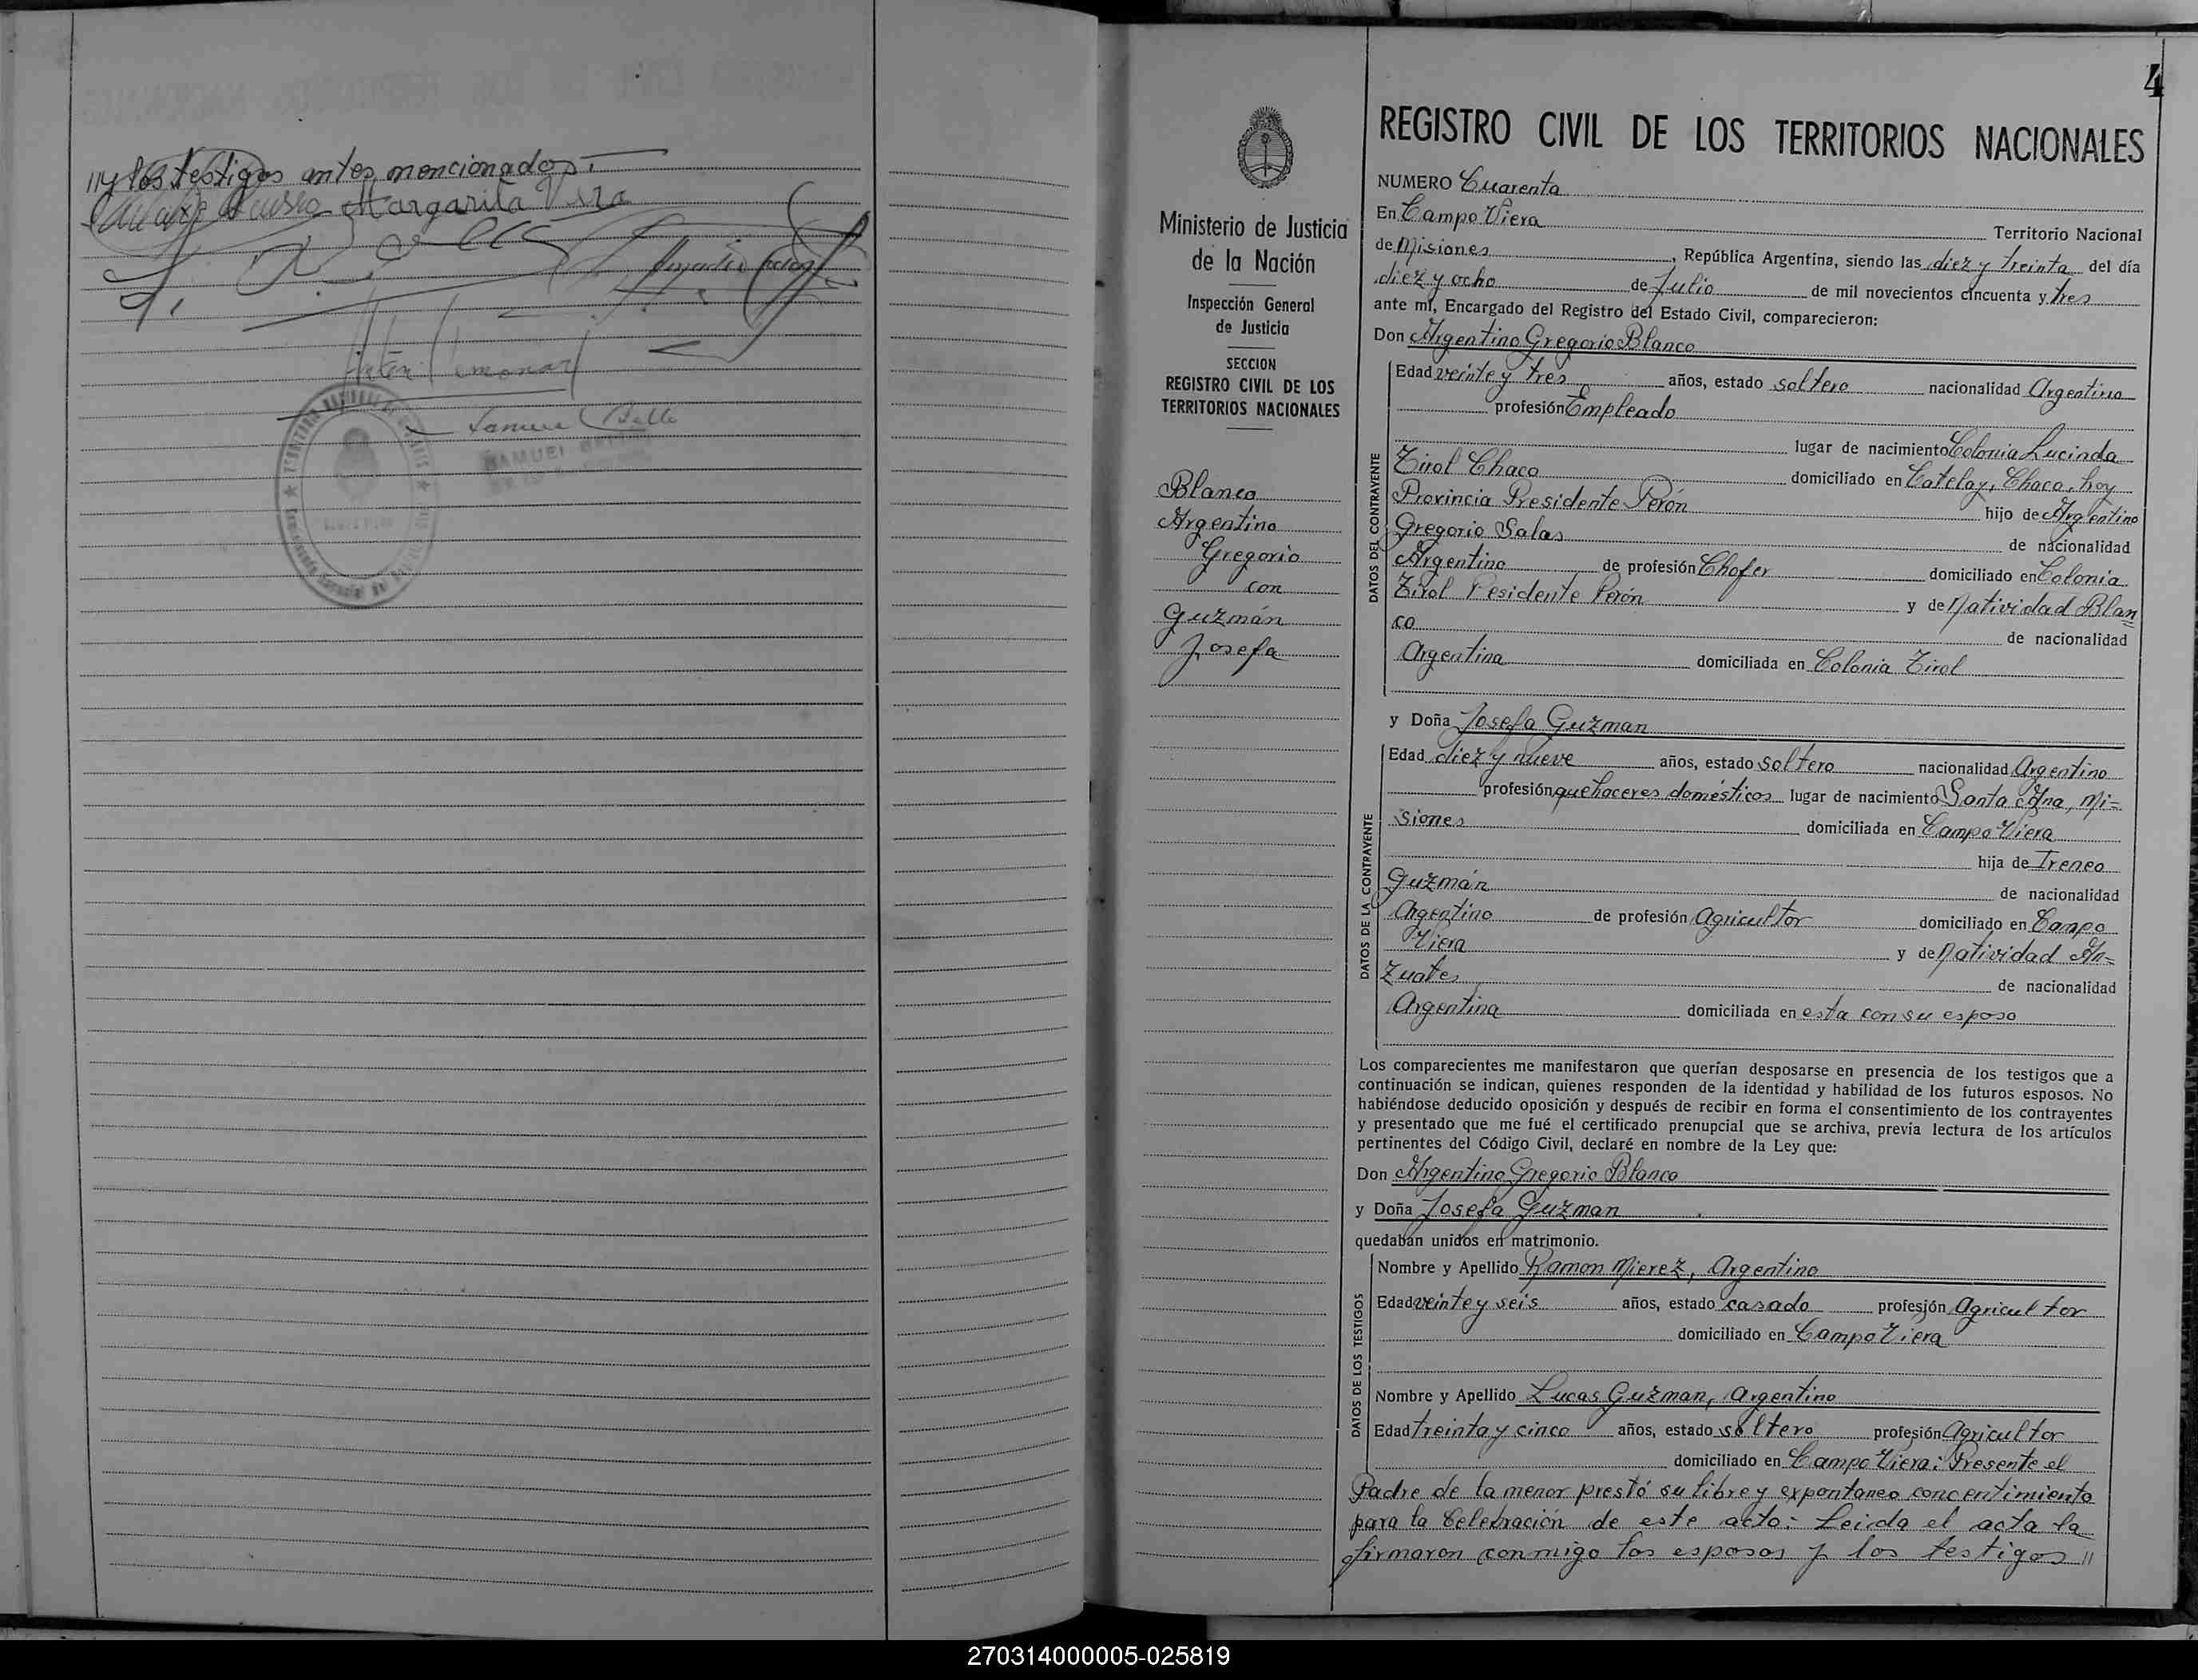 "y los testigos antes mencionados.-
Margarita Vera
4
REGISTRO CIVIL DE LOS TERRITORIOS NACIONALES
Ministerio de Justicia
de la Nación
Inspección General
de Justicia
SECCION
REGISTRO CIVIL DE LOS
TERRITORIOS NACIONALES
Blanco
Argentino
Gregorio
con
Guzmán
Josefa
NUMERO Cuarenta
En Campo Viera Territorio Nacional
de Misiones, República Argentina, siendo las diez y treinta del día
diez y ocho de Julio de mil novecientos cincuenta y tres
ante mí, Encargado del Registro del Estado Civil, comparecieron:
Don Argentino Gregorio Blanco
DATOS DEL CONTRAYENTE
Edad veinte y tres años, estado soltero nacionalidad Argentino
profesión Empleado
lugar de nacimiento Colonia Lucinda
Zirol Chaco domiciliado en Catelay, Chaco, hoy
Provincia Presidente Perón hijo de Argentino
Gregorio Salas de nacionalidad
Argentino de profesión Chofer domiciliado en Colonia
Zirol Presidente Perón y de Natividad Blan=
co de nacionalidad
Argentina domiciliada en Colonia Zirol
y Doña Josefa Guzman
DATOS DE LA CONTRAYENTE
Edad diez y nueve años, estado soltero nacionalidad Argentino
profesión quehaceres domésticos lugar de nacimiento Santa Ana, Mi=
siones domiciliada en Campo Viera
hija de Ireneo
Guzmán de nacionalidad
Argentino de profesión Agricultor domiciliado en Campo
Viera y de Natividad An=
zuates de nacionalidad
Argentina domiciliada en esta con su esposo
Los comparecientes me manifestaron que querían desposarse en presencia de los testigos que a
continuación se indican, quienes responden de la identidad y habilidad de los futuros esposos. No
habiéndose deducido oposición y después de recibir en forma el consentimiento de los contrayentes
y presentado que me fué el certificado prenupcial que se archiva, previa lectura de los artículos
pertinentes del Código Civil, declaré en nombre de la Ley que:
Don Argentino Gregorio Blanco
y Doña Josefa Guzman
quedaban unidos en matrimonio.
DATOS DE LOS TESTIGOS
Nombre y Apellido Ramon Mierez, Argentino
Edad veinte y seis años, estado casado profesión Agricultor
domiciliado en Campo Viera
Nombre y Apellido Lucas Guzman, Argentino
Edad treinta y cinco años, estado soltero profesión Agricultor
domiciliado en Campo Viera: Presente el
Padre de la menor prestó su libre y expontaneo concentimiento
para la Celebración de este acto:- Leida el acta la
firmaron conmigo los esposos y los testigos "
270314000005-025819